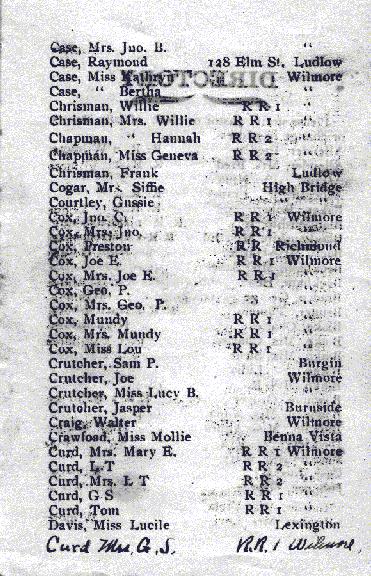 Case, Mrs. Jno. B. "
Case, Raymond 128 Elm St. Ludlow
Case, Miss Kathryn Wilmore
Case, " Bertha "
Chrisman, Willie R R 1 "
Chrisman, Mrs. Willie R R 1 "
Chapman, " Hannah R R 2 "
Chapman, Miss Geneva R R 2 "
Chrisman, Frank Ludlow
Cogar, Mrs. Siffie High Bridge
Courtley, Gussie "
Cox, Jno. C. R R 1 Wilmore
Cox, Mrs. Jno. R R 1 "
Cox, Preston R R Richmond
Cox, Joe E. R R 1 Wilmore
Cox, Mrs. Joe E. R R 1 "
Cox, Geo. P. "
Cox, Mrs. Geo. P. "
Cox, Mundy R R 1 "
Cox, Mrs. Mundy R R 1 "
Cox, Miss Lou R R 1 "
Crutcher, Sam P. Burgin
Crutcher, Joe Wilmore
Crutcher, Miss Lucy B. "
Crutcher, Jasper Burnside
Craig, Walter Wilmore
Crawford, Miss Mollie Benna Vista
Curd, Mrs. Mary E. R R 1 Wilmore
Curd, L T R R 2 "
Curd, Mrs. L T R R 2 "
Curd, G S R R 1 "
Curd, Tom R R 1 "
Davis, Miss Lucile Lexington
Curd Mrs G. S. R.R. 1 Wilmore,